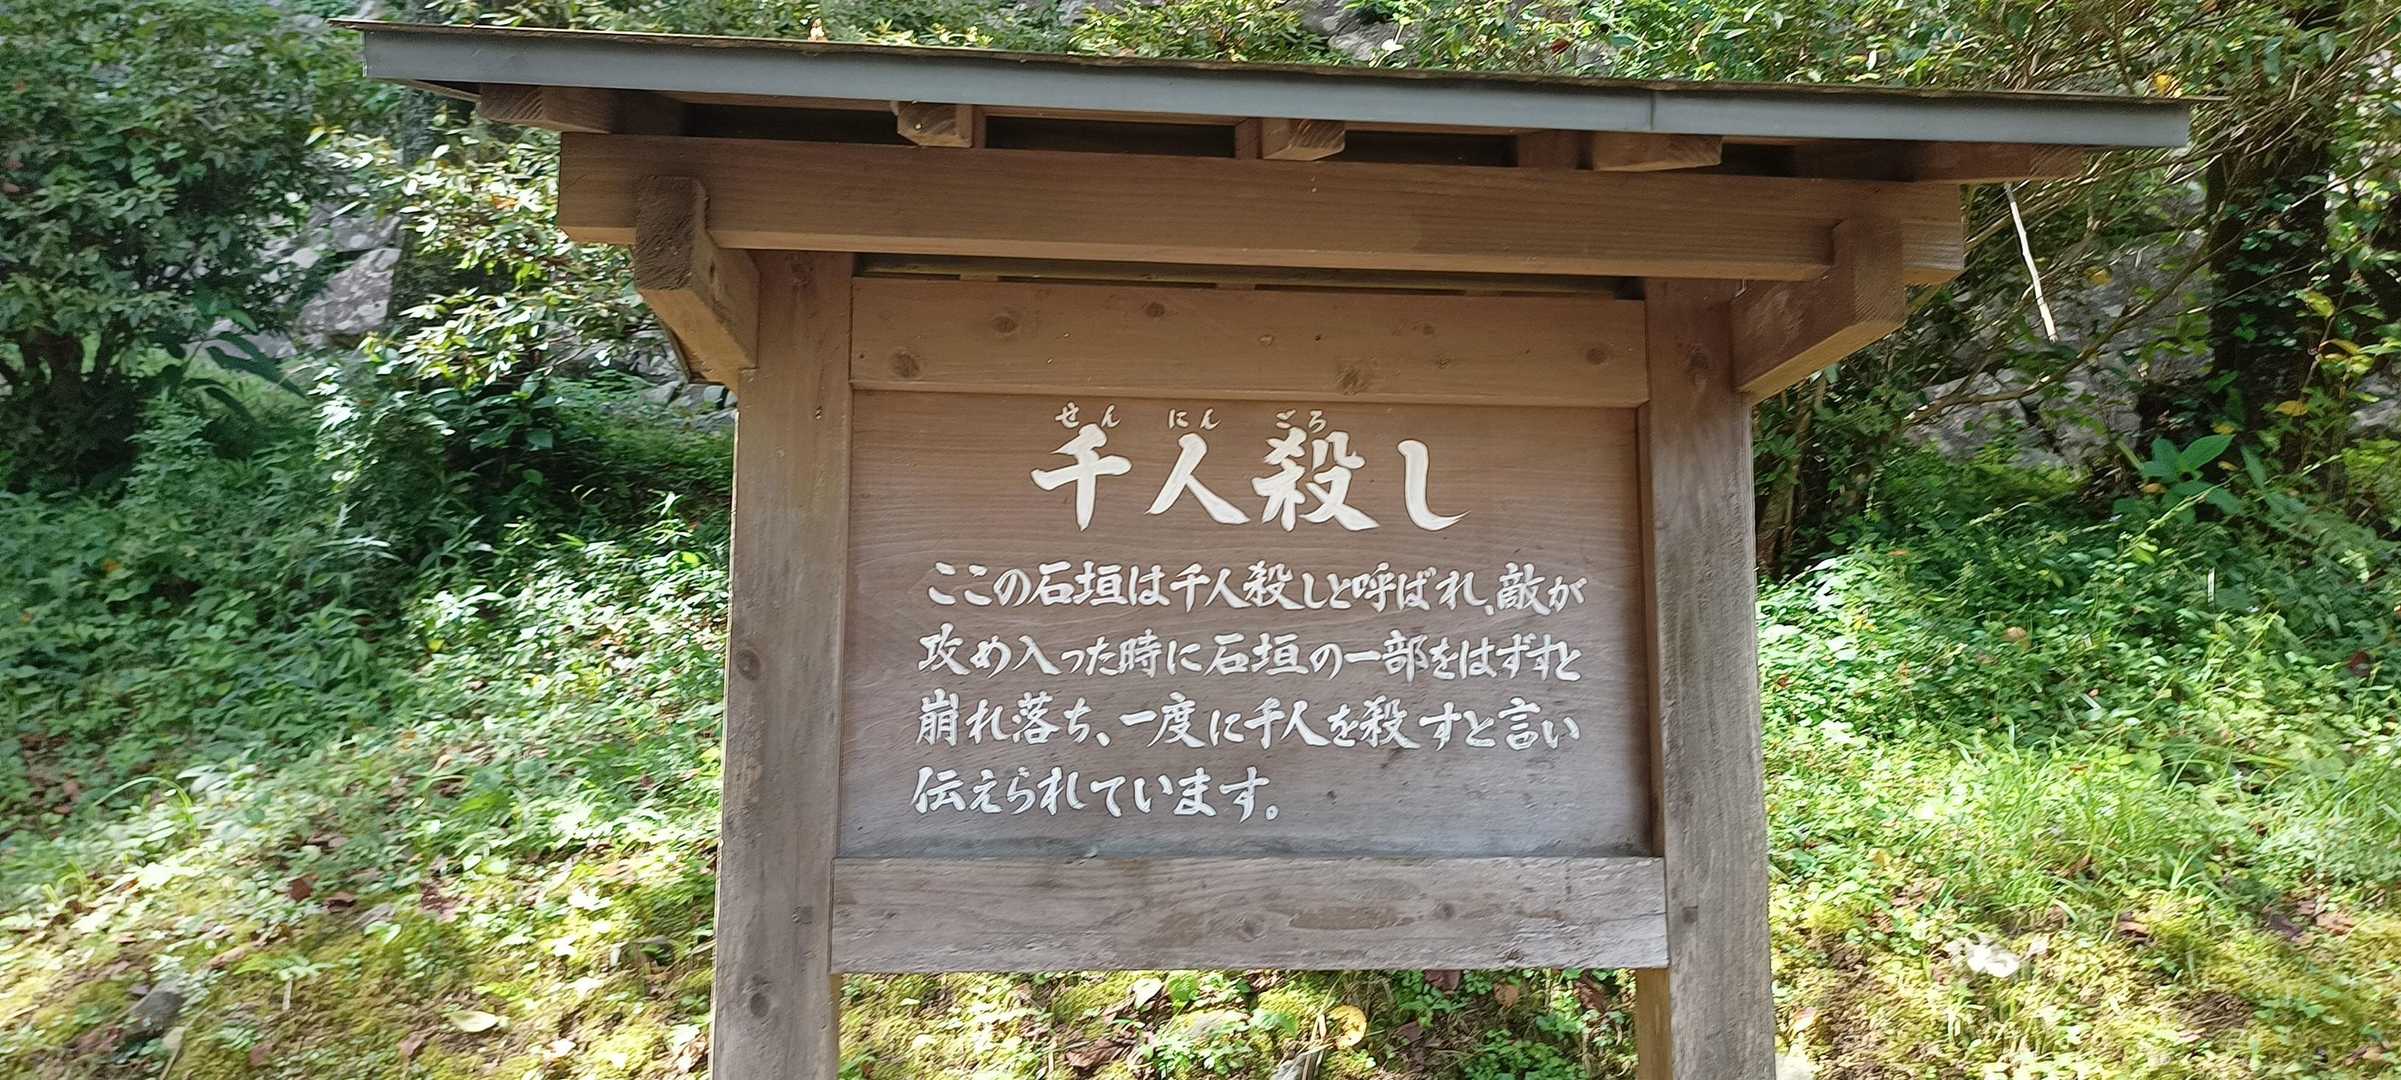 せんにんごろ
千人殺し
ここの石垣は千人殺しと呼ばれ、敵が
攻め入った時に石垣の一部をはずすと
崩れ落ち、一度に千人を殺すと言い
伝えられています。